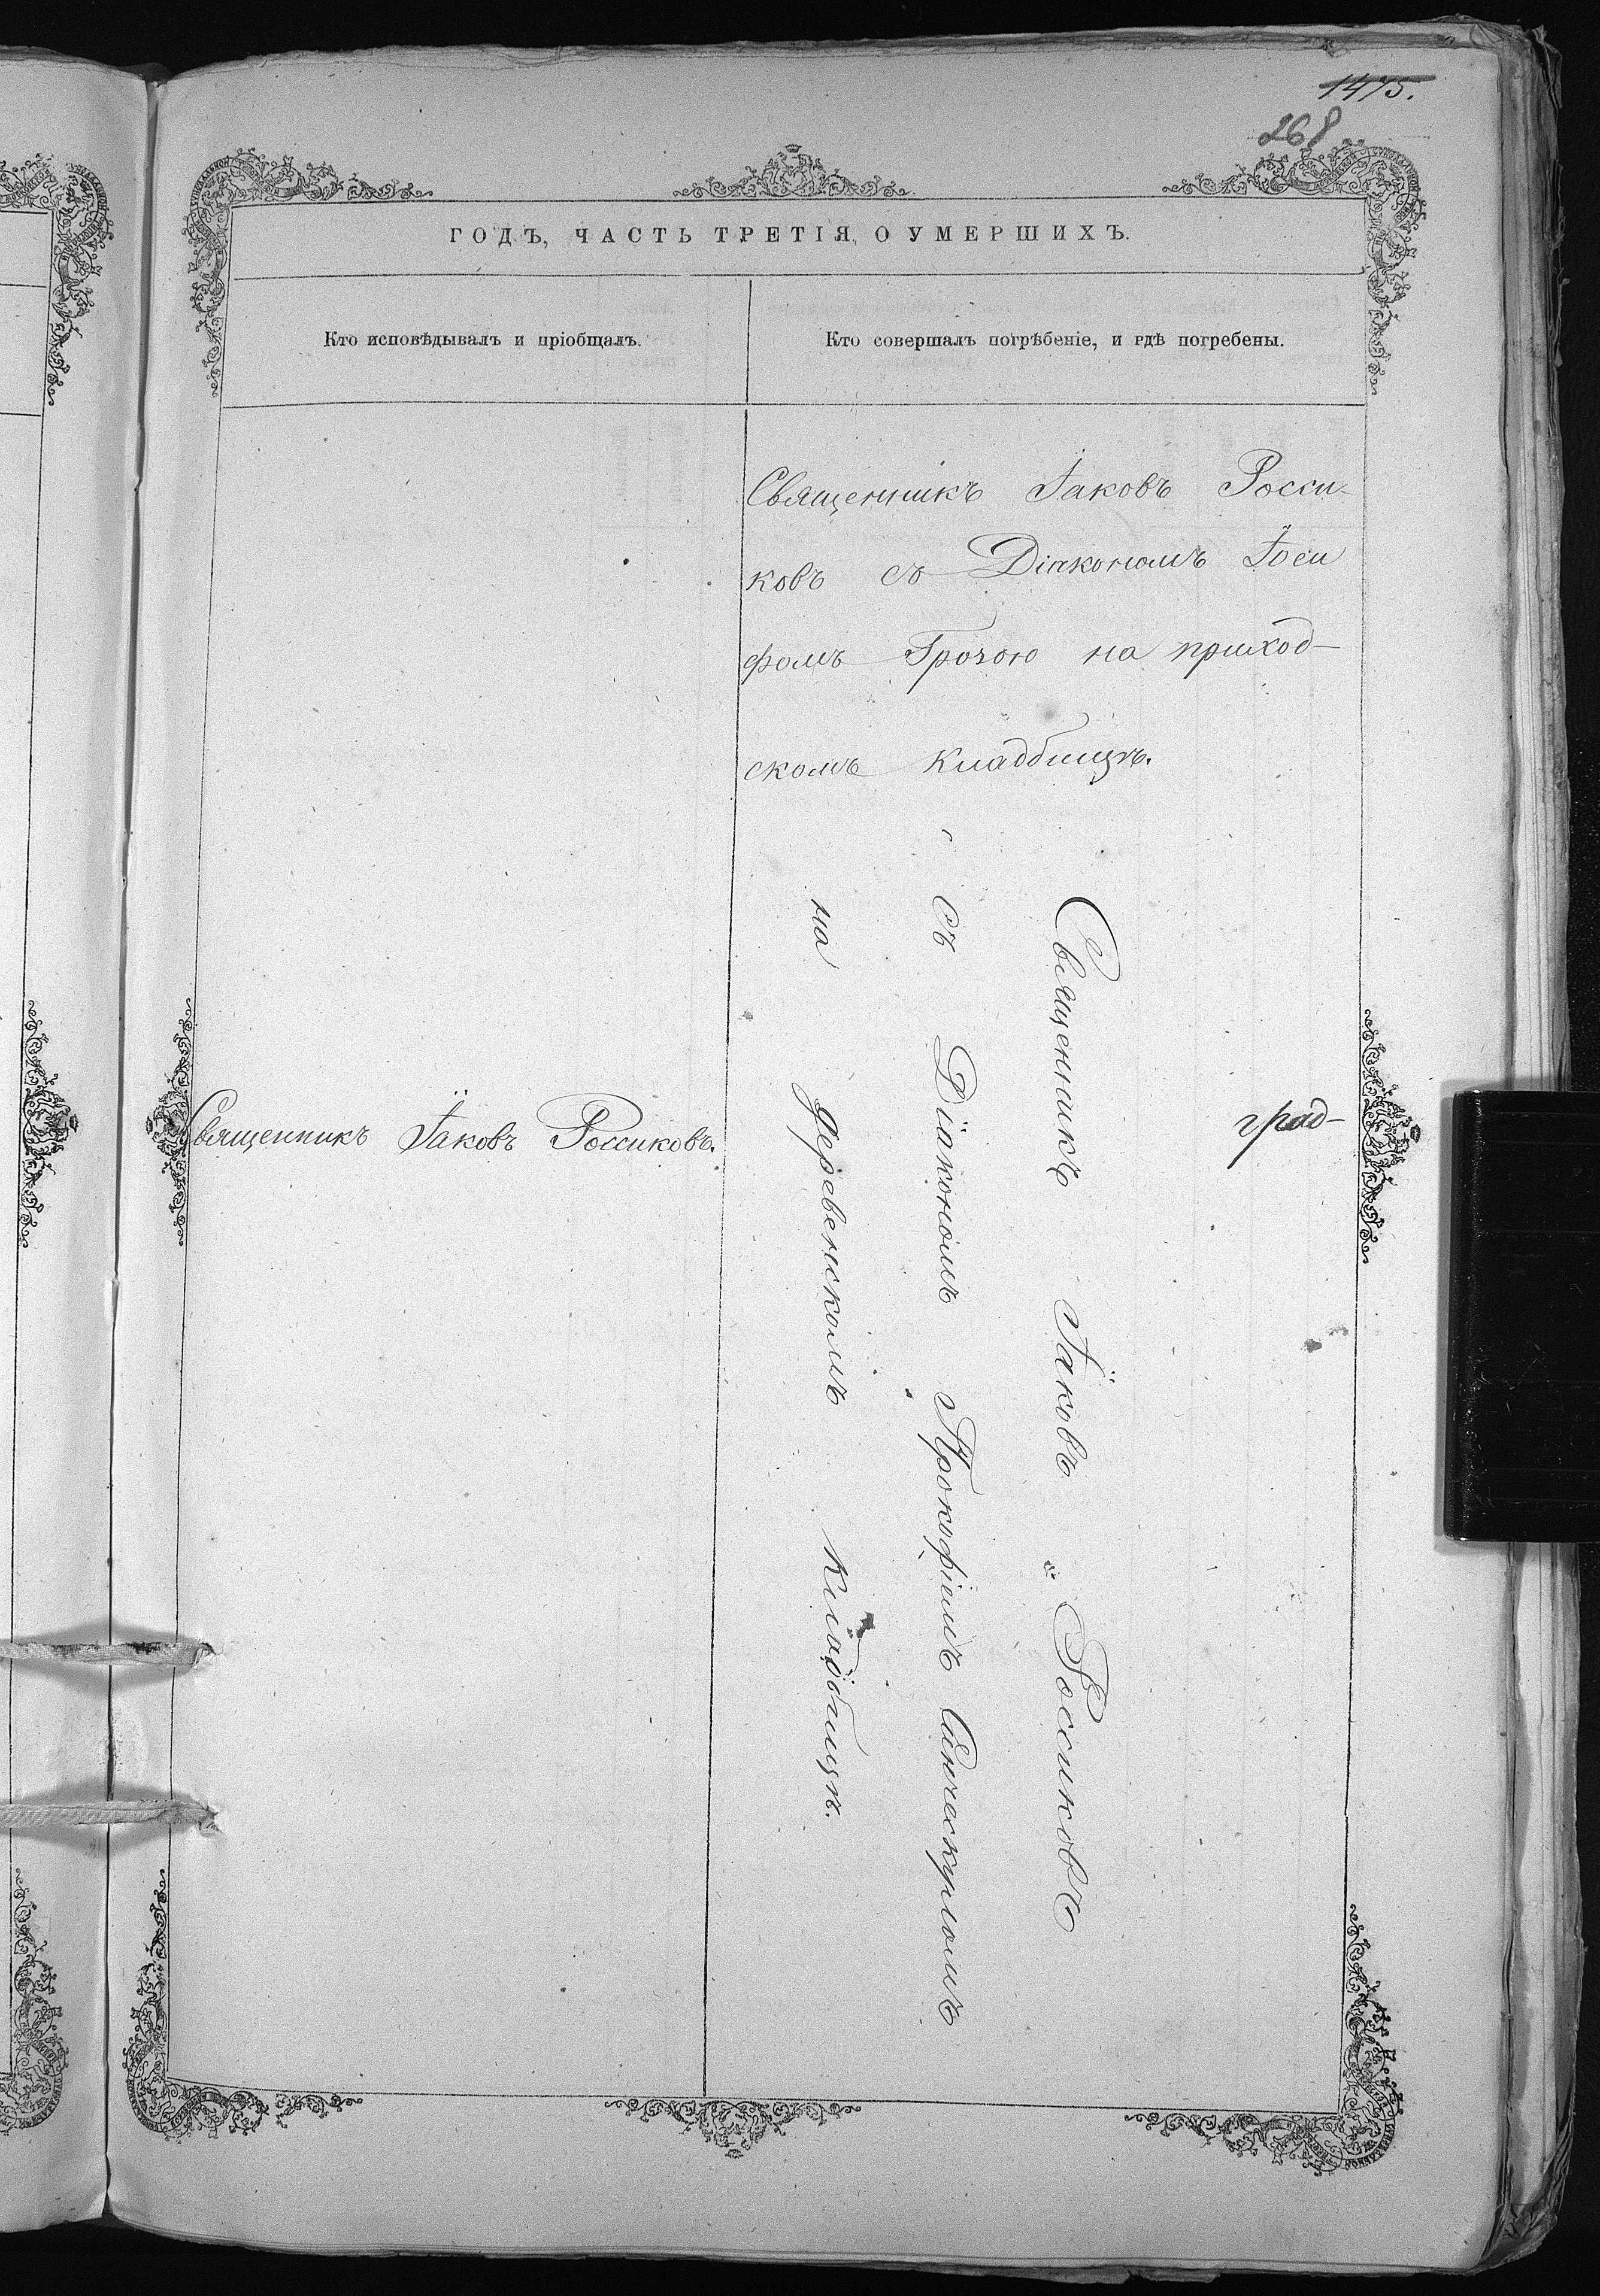 1475.
268
ГОДЪ, ЧАСТЬ ТРЕТІЯ, О УМЕРШИХЪ.
Кто исповѣдывалъ и пріобщалъ.
Кто совершалъ погрѣбеніе, и гдѣ погребены.
Священникъ Іаковъ Росси-
ковъ съ Діакономъ Іоси
фомъ Грозою на приход-
скомъ кладбищѣ.
Священникъ Іаковъ Россиковъ.
град-
Священникъ Іаковъ Россиковъ
съ Діакономъ Прокофіемъ
на деревенскомъ кладбищѣ.